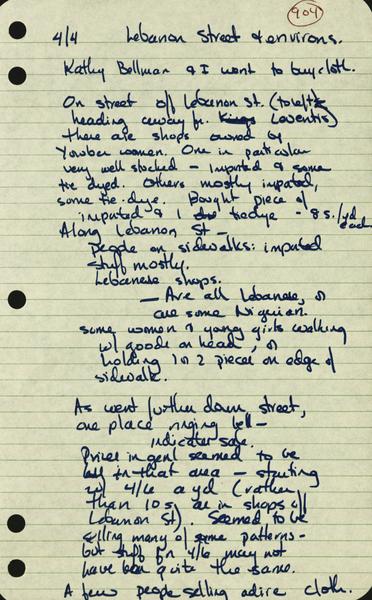 904
4/4 Lebanon Street & environs.
Kathy Bellman & I went to buy cloth.
On street off Lebanon St. (to left
heading away fr. Kings Leventis)
there are shops owned by
Yoruba women. One in particular
very well stocked – imported & some
tie dyed. Others mostly imported,
some tie-dye. Bought piece of
imported & 1 tiedye - 8s./yd
each
Along Lebanon St –
people on sidewalks: imported
stuff mostly.
Lebanese shops.
— Are all Lebanese, or
are some Nigerian.
some women & young girls walking
w/ goods on head, or
holding 1 or 2 pieces on edge of
sidewalk.
As went further down street,
one place ringing bell –
indicates sale.
Prices in genl seemed to be
in that area – starting
4/6 a yd (rather
than 10s, as in shops off
Lebanon St). Seemed to be
selling many of same patterns –
but stuff for 4/6 may not
have been quite the same.
A few people selling adire cloth.